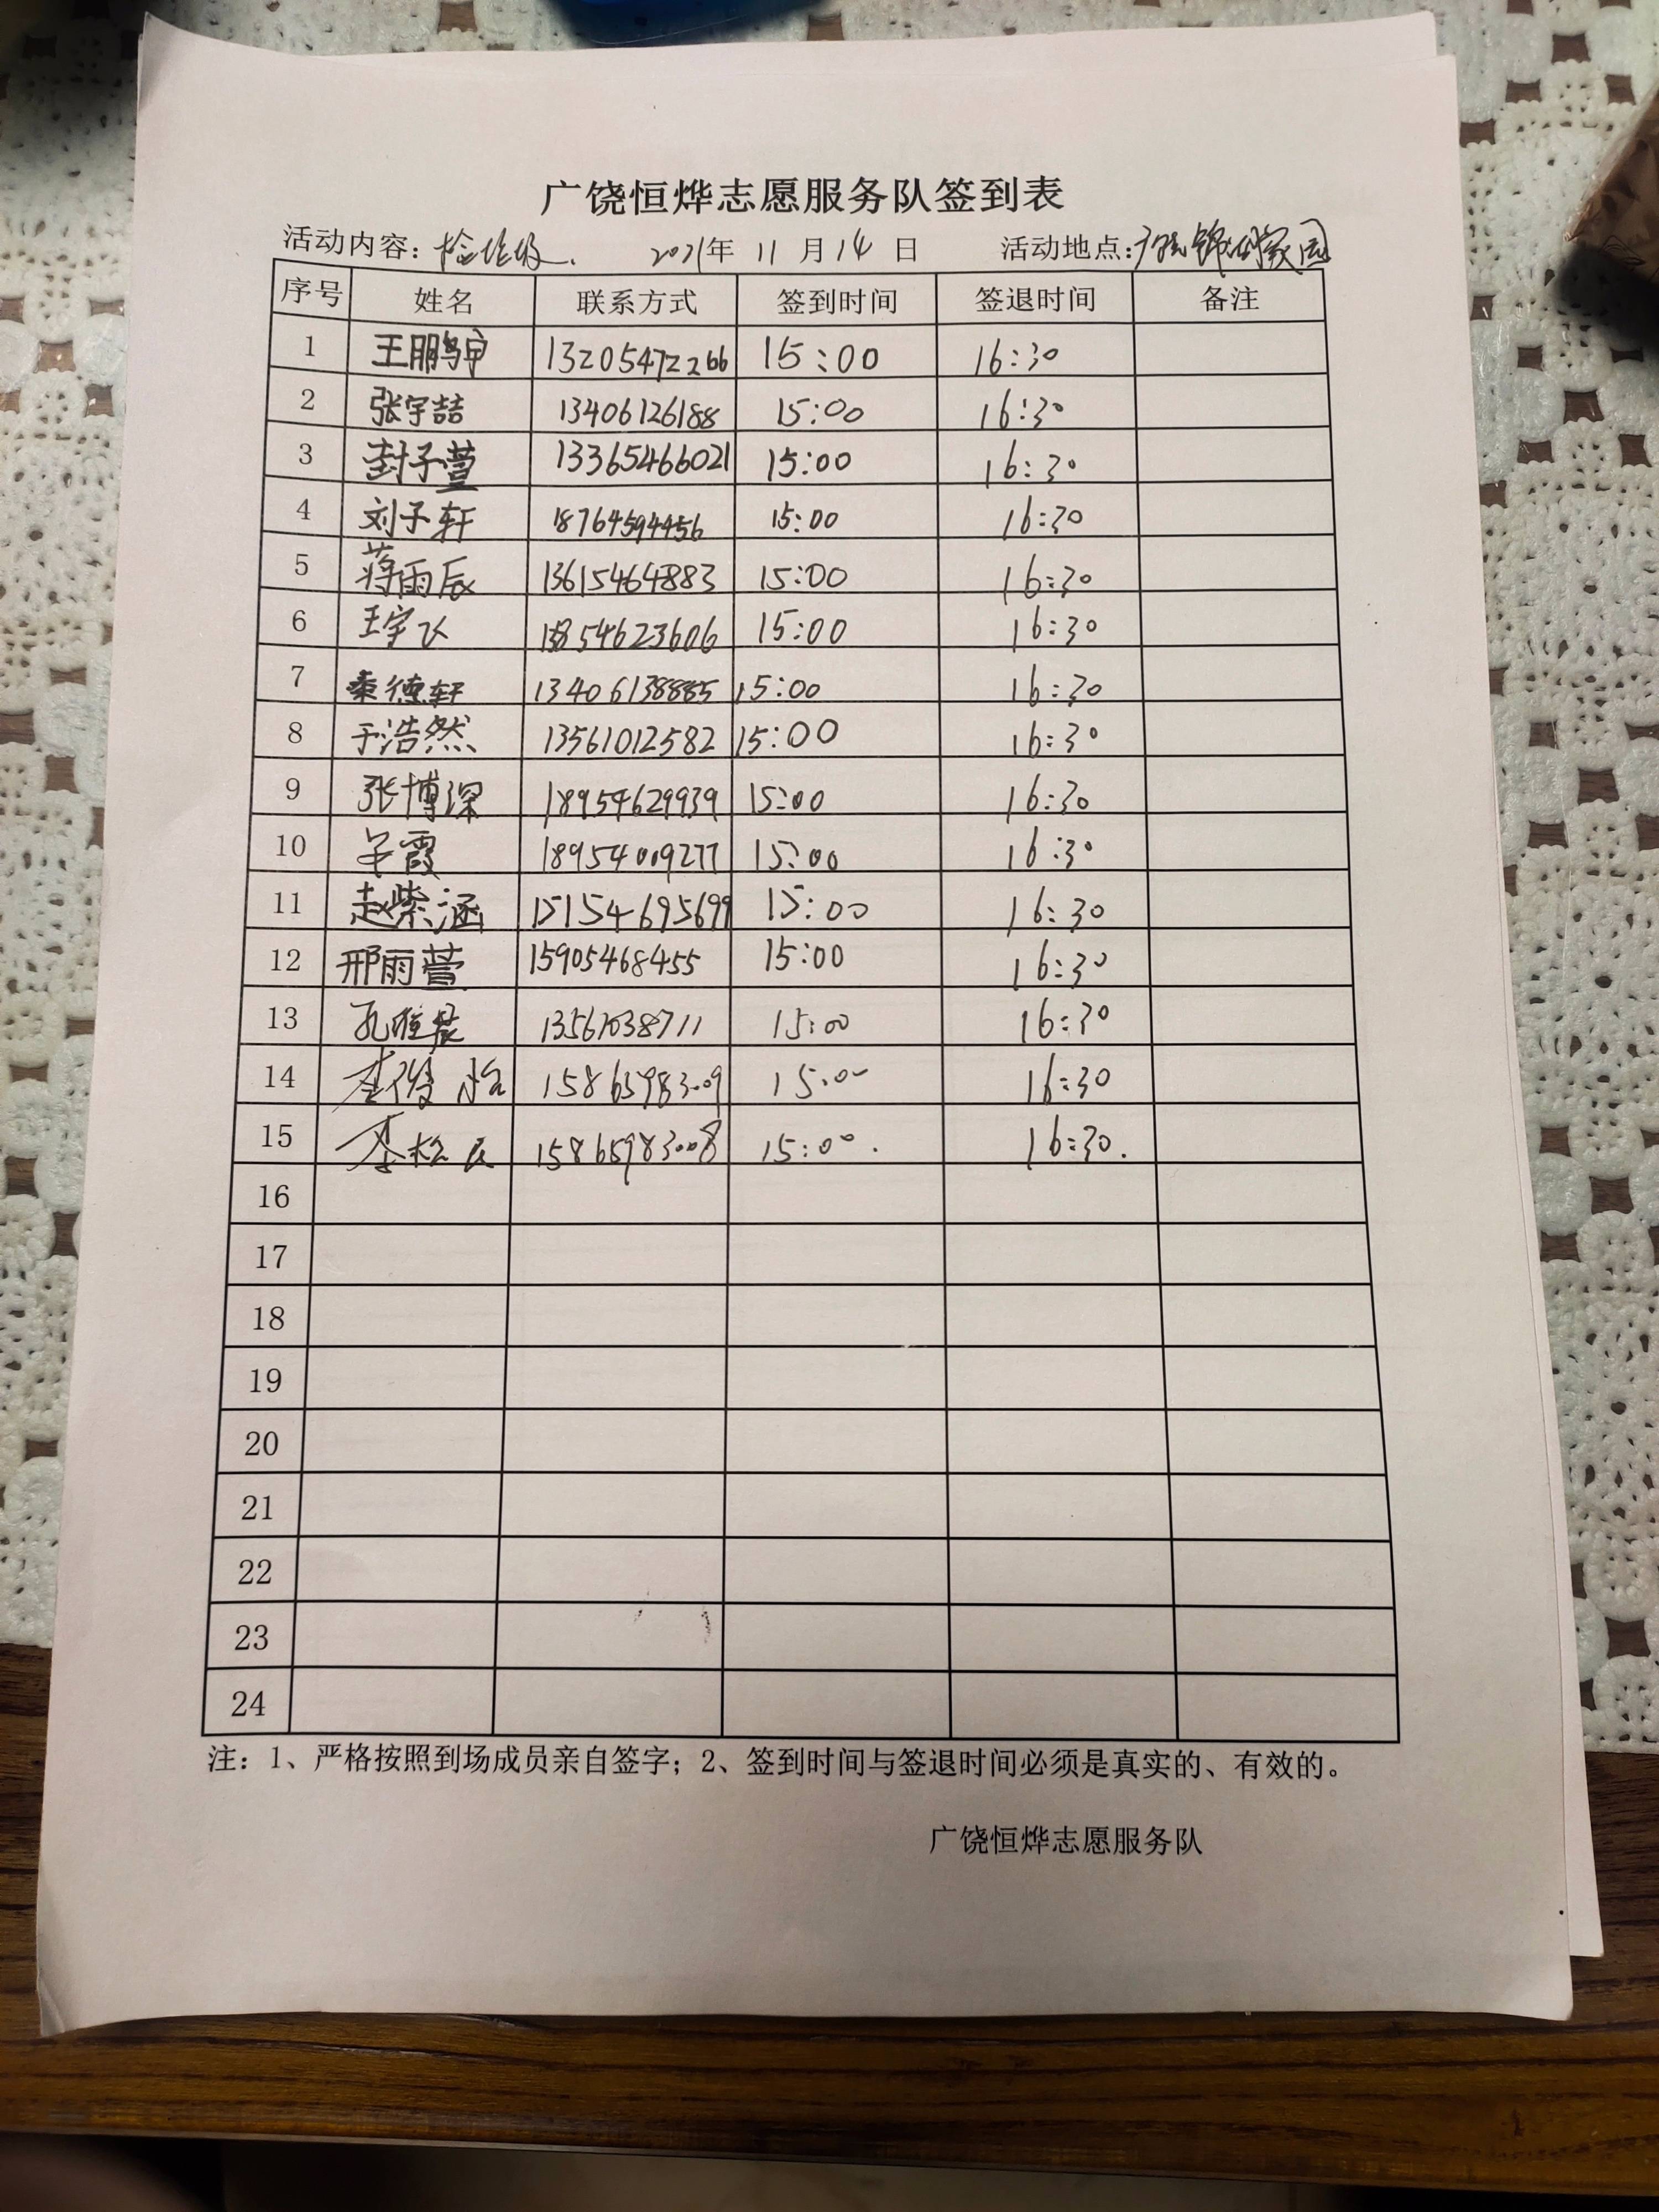 广饶恒烨志愿服务队签到表
活动内容: 捡垃圾. 2021年 11 月 14 日 活动地点: 锦湖家园
序号 姓名 联系方式 签到时间 签退时间 备注
1 王鹏宇 13205472266 15:00 16:30
2 张宇喆 13406126188 15:00 16:30
3 封子萱 13365466021 15:00 16:30
4 刘子轩 18764594456 15:00 16:30
5 蒋雨辰 13615464883 15:00 16:30
6 王宇飞 15:00 16:30
7 秦德轩 13406138885 15:00 16:30
8 于浩然 13561012582 15:00 16:30
9 张博深 18954629939 15:00 16:30
10 霞 18954009277 15:00 16:30
11 赵紫涵 15154695699 15:00 16:30
12 邢雨萱 15905468455 15:00 16:30
13 13561038711 15:00 16:30
14 李俊 15865983009 15:00 16:30
15 李 15865983008 15:00. 16:30.
16
17
18
19
20
21
22
23
24
注: 1、严格按照到场成员亲自签字; 2、签到时间与签退时间必须是真实的、有效的。
广饶恒烨志愿服务队